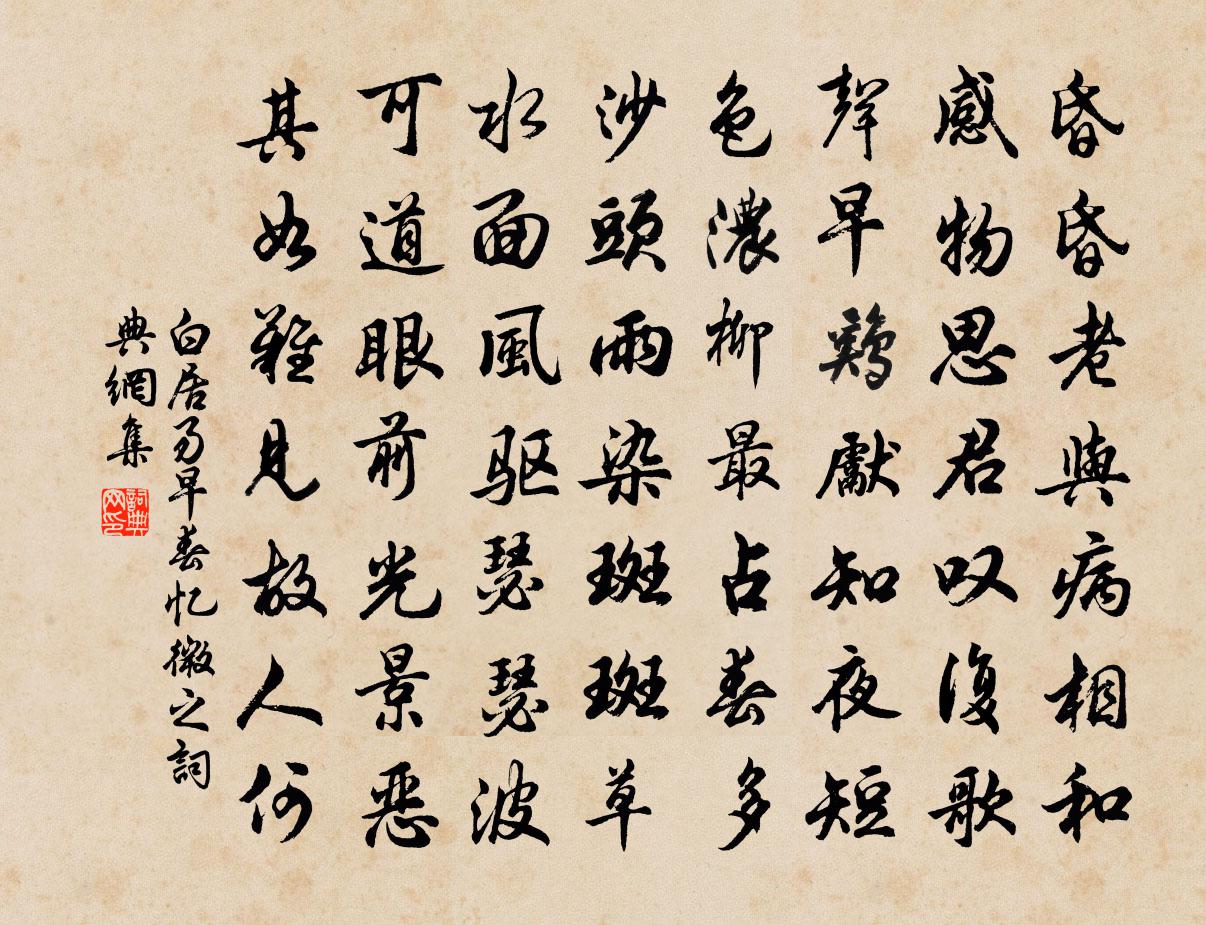 昏昏老與病相和
感物思君叹復歌
聲早鷄獻知夜短
色濃柳最占春多
沙頭雨染斑斑草
水面風驱瑟瑟波
可道眼前光景惡
其如難見故人何
白居易早春忆微之詞
典網集
詞典网印